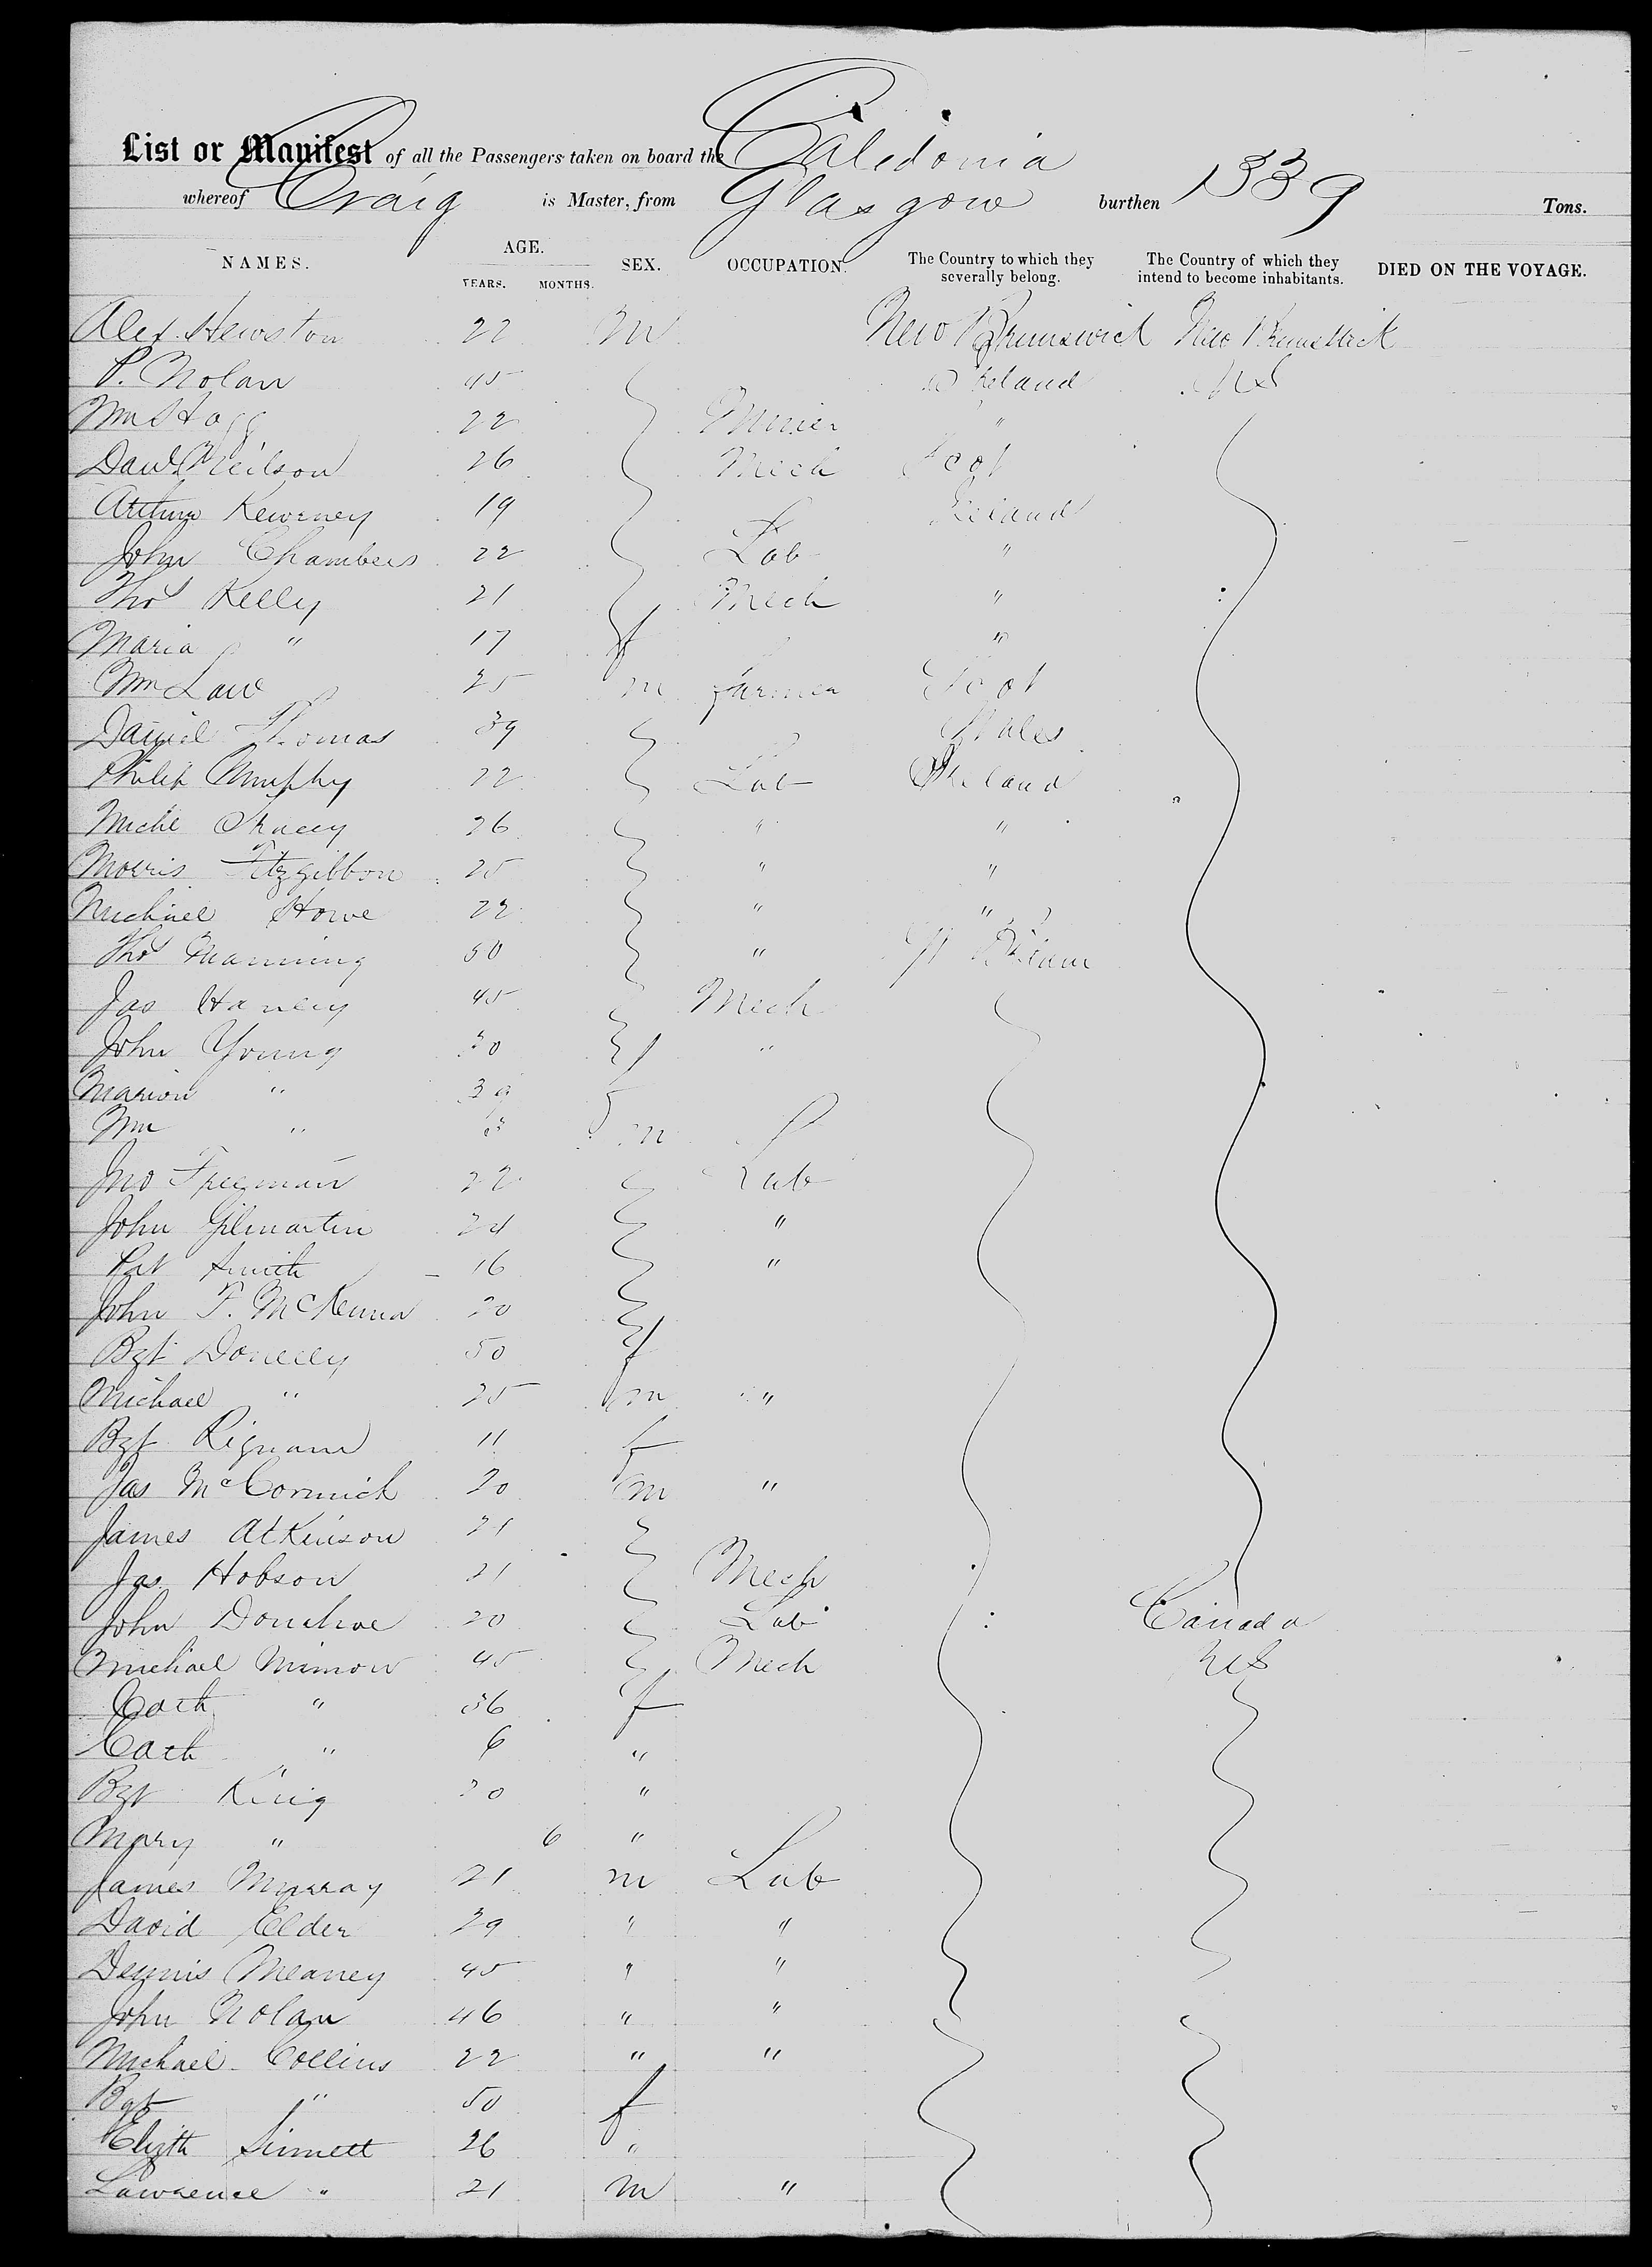 List or Manifest of all the Passengers taken on board the Caledonia
whereof Craig is Master, from Glasgow burthen 1339 Tons.
NAMES. AGE. YEARS. MONTHS. SEX. OCCUPATION. The Country to which they severally belong. The Country of which they intend to become inhabitants. DIED ON THE VOYAGE.
Alex. Hewston 22 m New Brunswick New Brunswick
P. Nolan 45 Ireland US
Wm Hogg 22 Miner "
Danl Neilson 26 Mech Scot
Arthur Kewrney 19 Ireland
John Chambers 22 Lab "
Thos Kelly 21 Mech "
Maria " 17 f "
Wm Law 25 m farmer Scot
Daniel Thomas 39 Wales
Philip Murphy 22 Lab Ireland
Michl Stacey 26 " "
Morris Fitzgibbon 25 " "
Michael Howe 22 " "
Thos Manning 50 "
Jas Haney 45 Mech
John Young 30 "
Marion " 39 f
Wm " m
Jno Freeman 22 Lab
John Gilmartin 24 "
Pat Smith 16 "
John F. McKenna 20
Bgt Donelly 50 f
Michael " 25 m "
Bgt Rignam 11 f
Jas McCormick 20 m "
James Atkinson 21
Jas. Hobson 21 Mech
John Donohoe 20 Lab Canada
Michael 45 Mech US
Cath " 36 f
Cath " 6 "
Bgt King 20 "
Mary " 6 "
James Murray 21 m Lab
David Elder 29 " "
Dennis Meaney 45 " "
John Nolan 46 " "
Michael Collins 22 " "
Bgt " 50 f
Elizth Sinnett 26 "
Lawrence " 21 m "